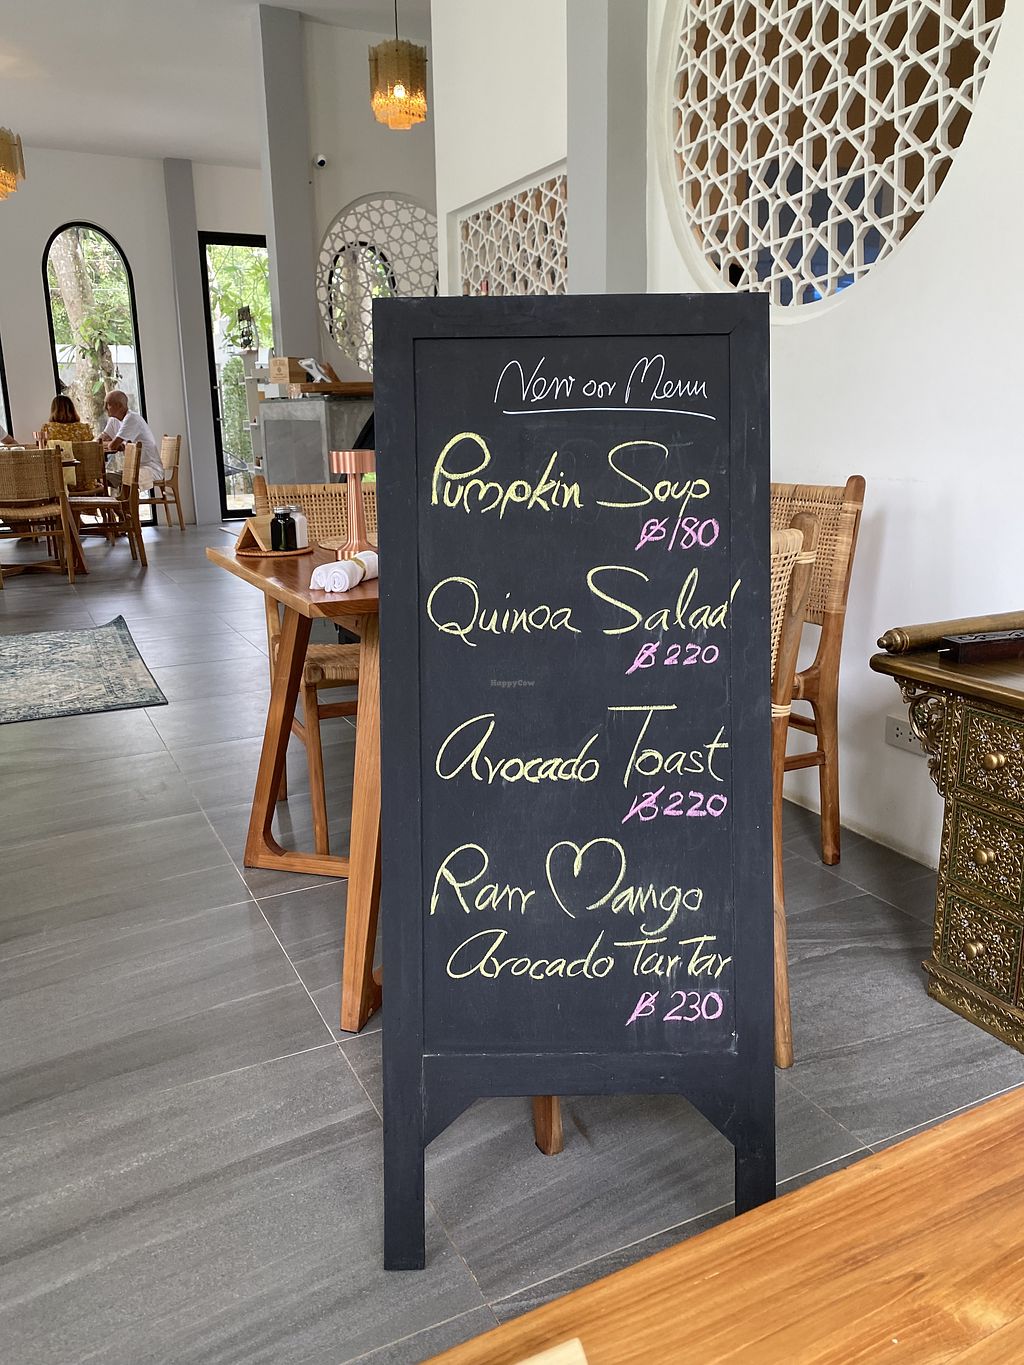 New on Menu
Pumpkin Soup
฿180
Quinoa Salad
฿220
Avocado Toast
฿220
Raw Mango
Avocado TarTar
฿230
HappyCow